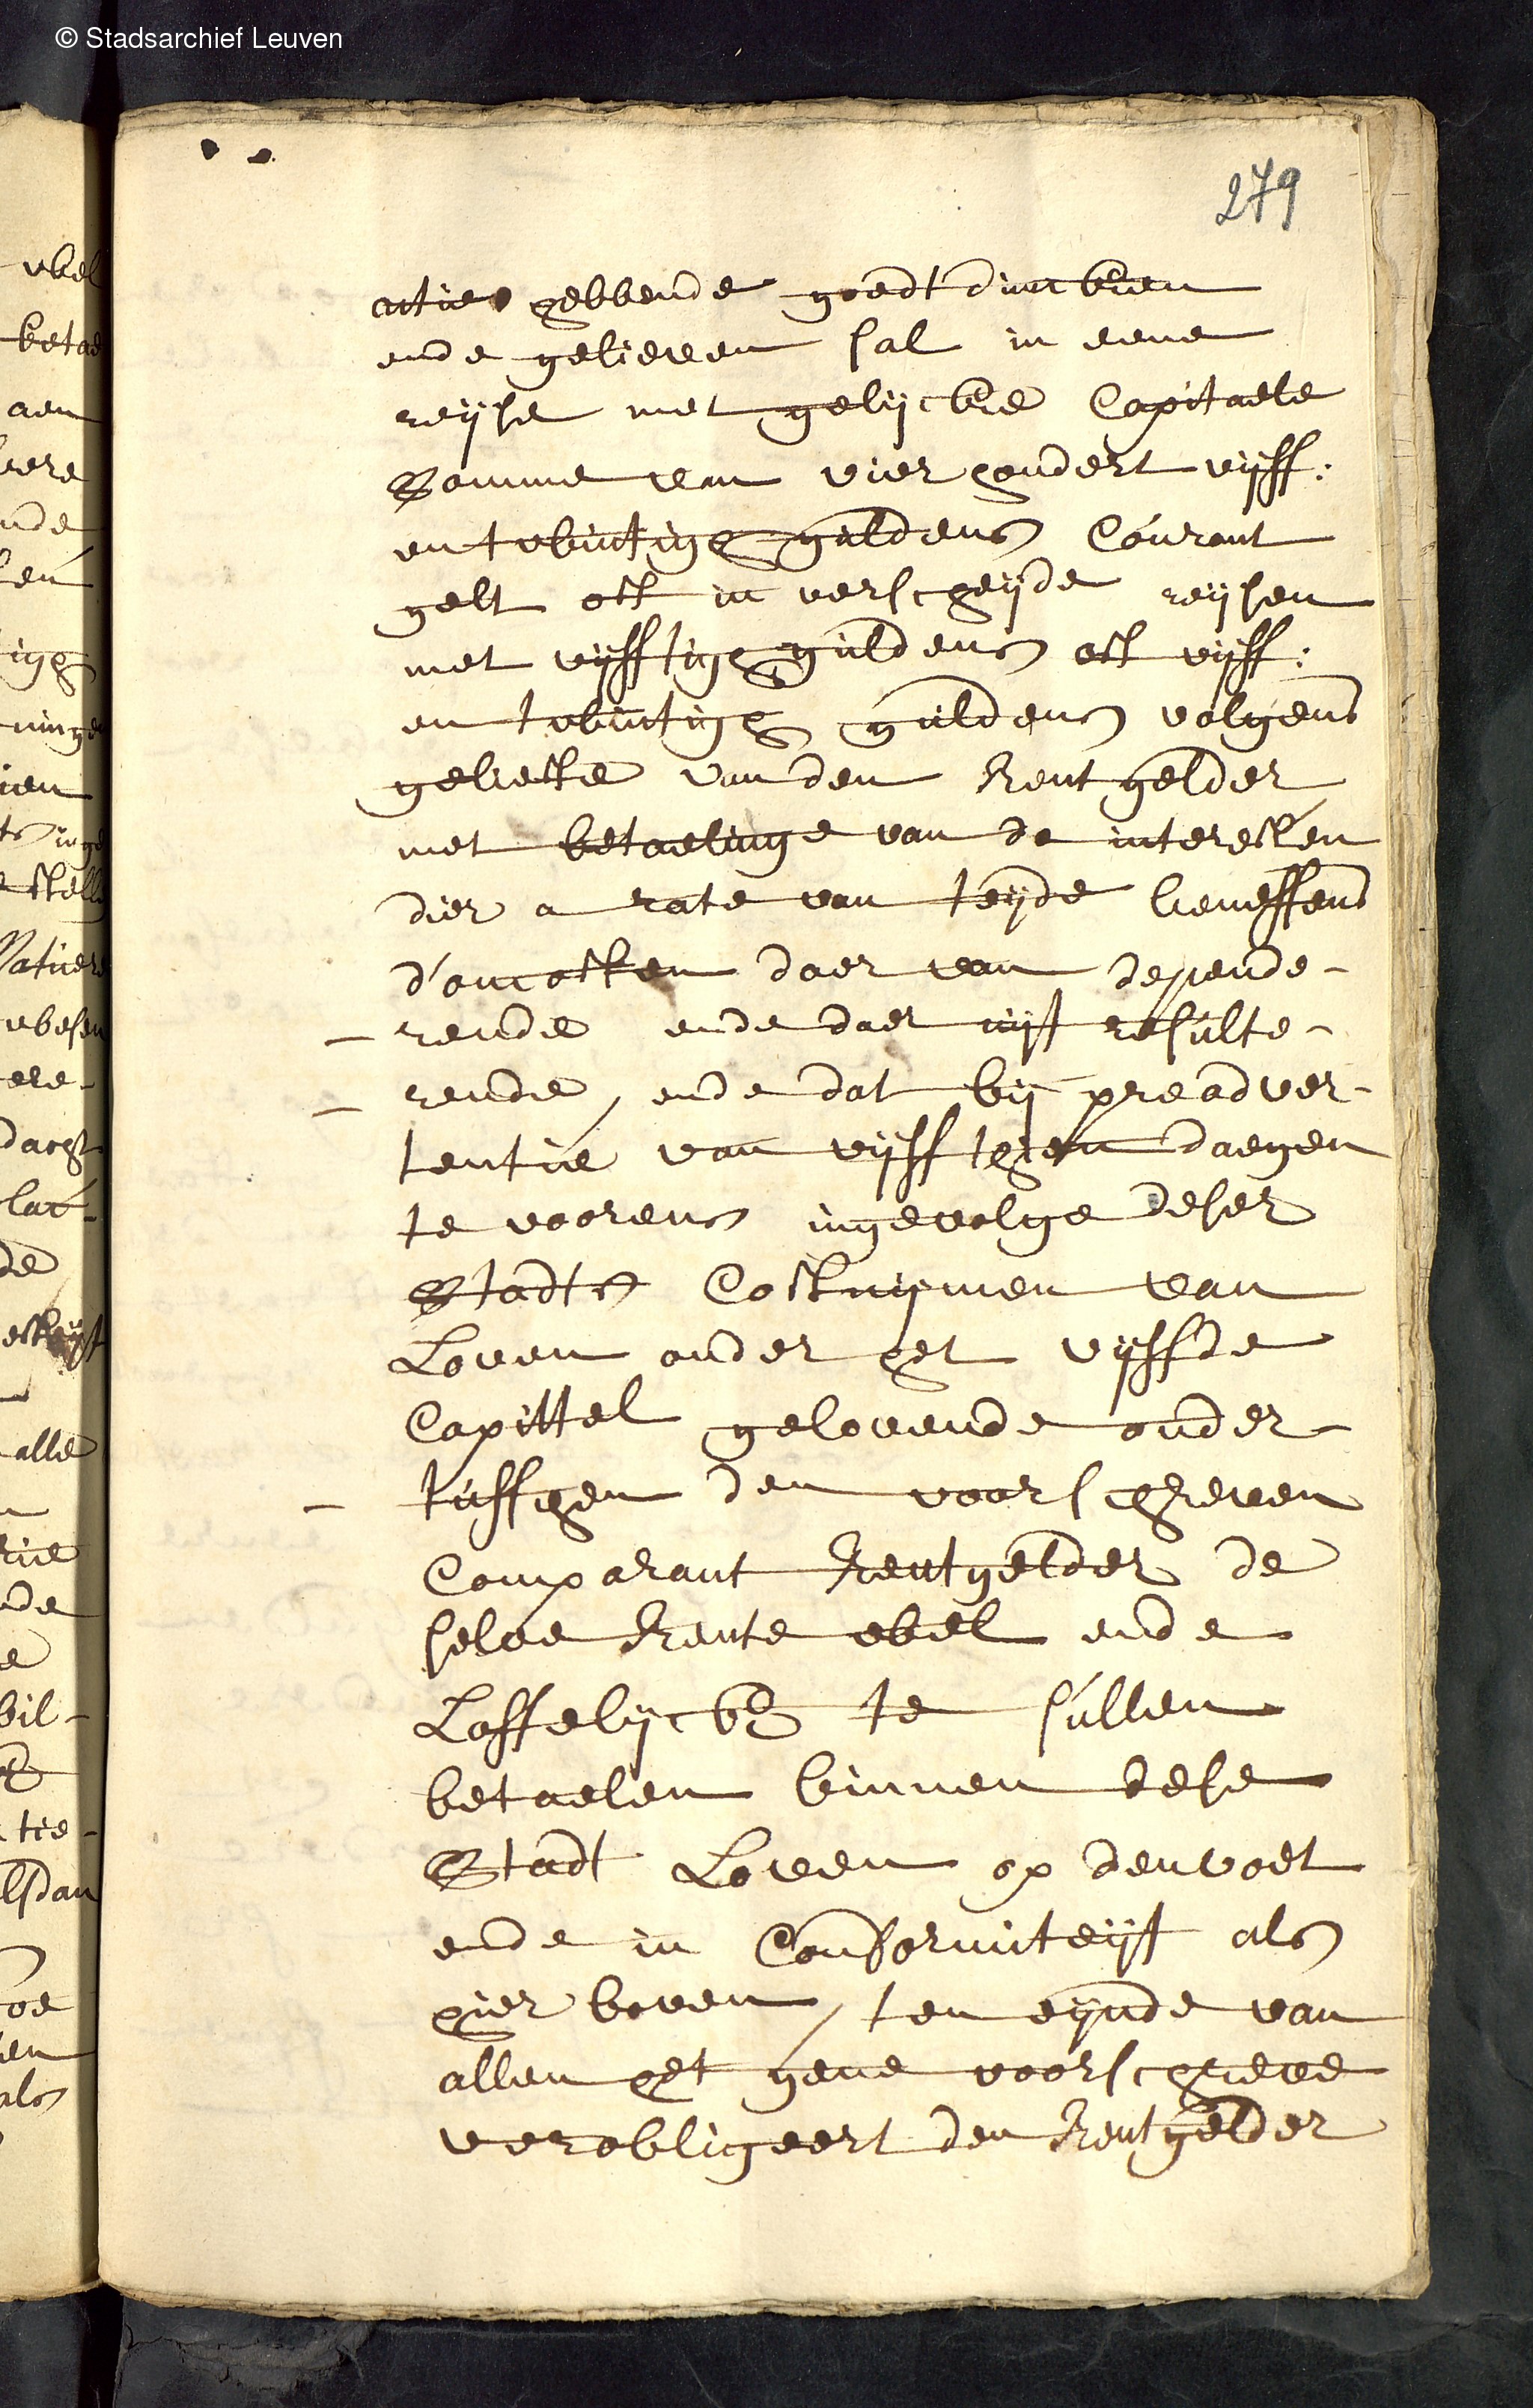 © Stadsarchief Leuven
279
actie hebbende goedt duncken
ende gelieven sal in eene
reijse met gelijcke Capitaele
Somme van vier hondert vijff:
entwintigh guldens Courant
gelt oft in verscheijde reijsen
met vijfftigh guldens oft vijff:
en twintigh guldens volgens
geliefte vanden Rentgelder
met betaelinge van de interesten
dier a rate van teijde beneffens
d'oncosten daer van depende-
rende ende daer uijt resulte-
rende, ende dat bij preadver-
tentie van vijffthien daegen
te voorens ingevolge deser
Stadts Costuijmen van
Loven onder het vijffde
Capittel gelovende onder-
tusschen den voorschreven
Comparant Rentgelder de
selve Rente wel ende
Loffelijck te sullen
betaelen binnen dese
Stadt Loven op den voet
ende in Conformiteijt als
hier boven, ten eijnde van
allen het gene voorschreve
verobligeert den Rentgelder